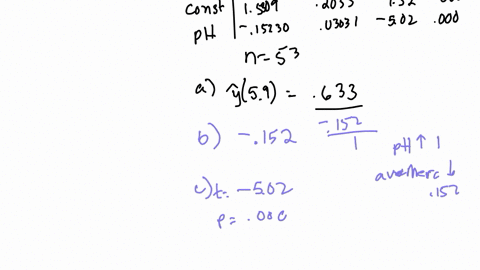 const 1.5309 .2035 .000
pH -.15230 .03031 -5.02 .000
n=53
a) ŷ(5.9) = .633
b) -.152
-.152
1
pH ↑ 1
ave Merc ↓
.152
c) t= -5.02
p= .000